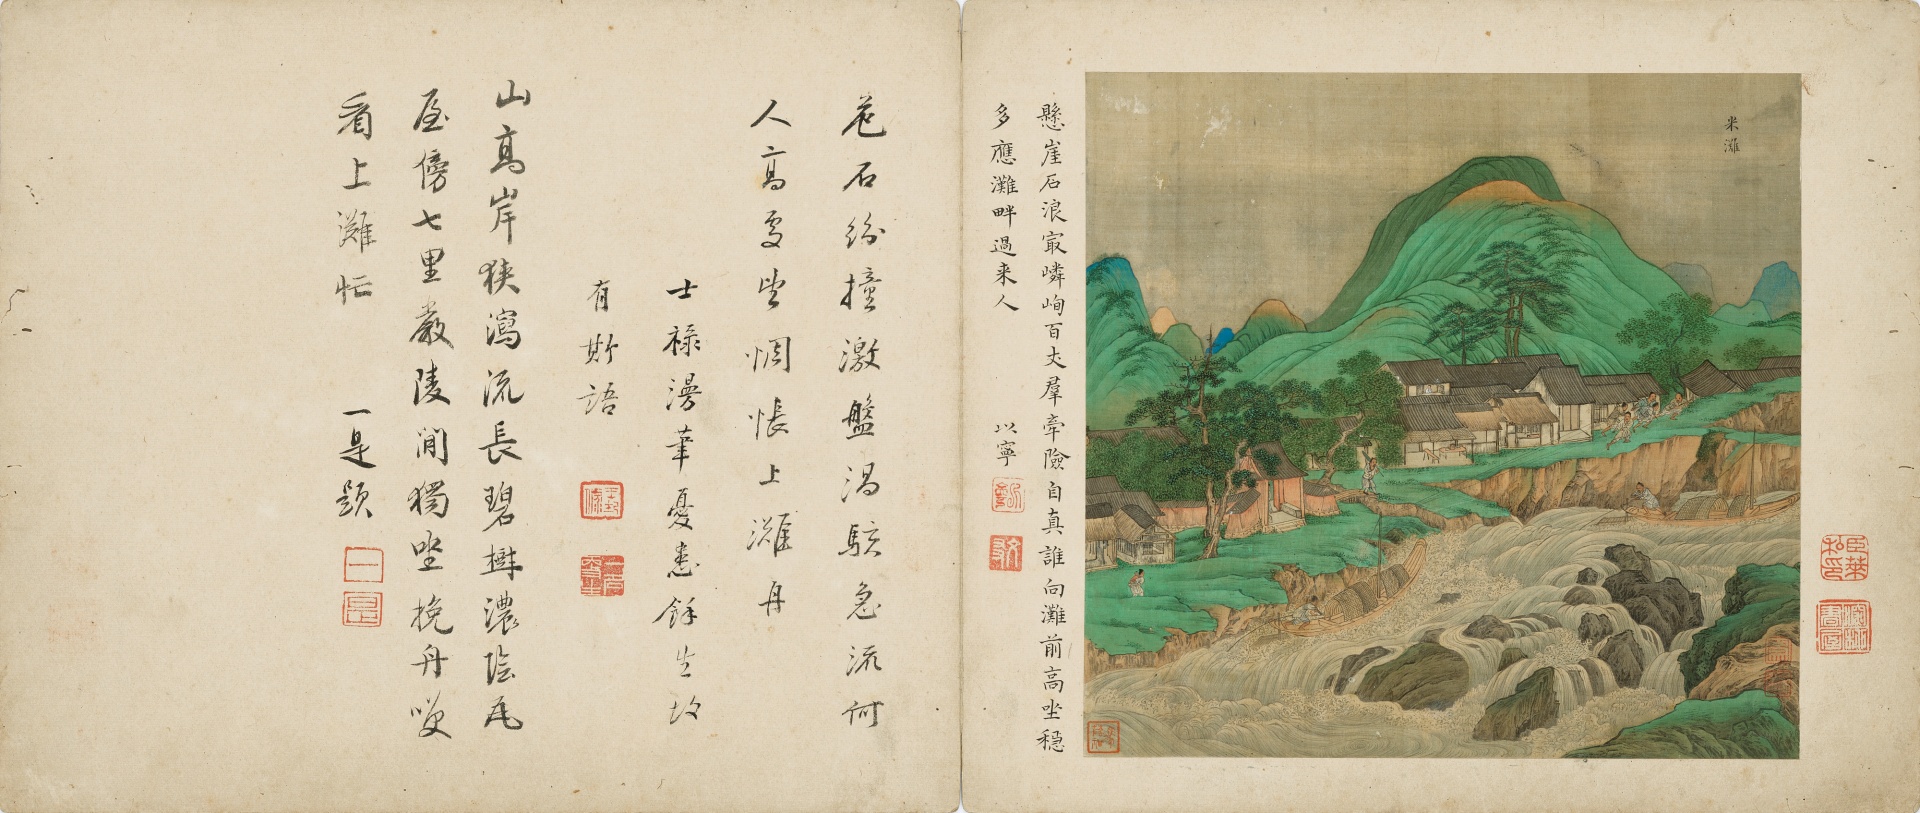 米灘
懸崖石浪冣嶙峋百丈羣牽險自真誰向灘前高坐穩
多應灘畔過来人
以寧
危石紛撞激盤渦駭急流何
人高處坐惆悵上灘舟
士祿漫筆憂患餘生故
有斯語
山高岸狹瀉流長碧樹濃陰瓦
屋傍七里嚴陵澗獨坐挽舟嘆
看上灘忙
一是題
臣葉